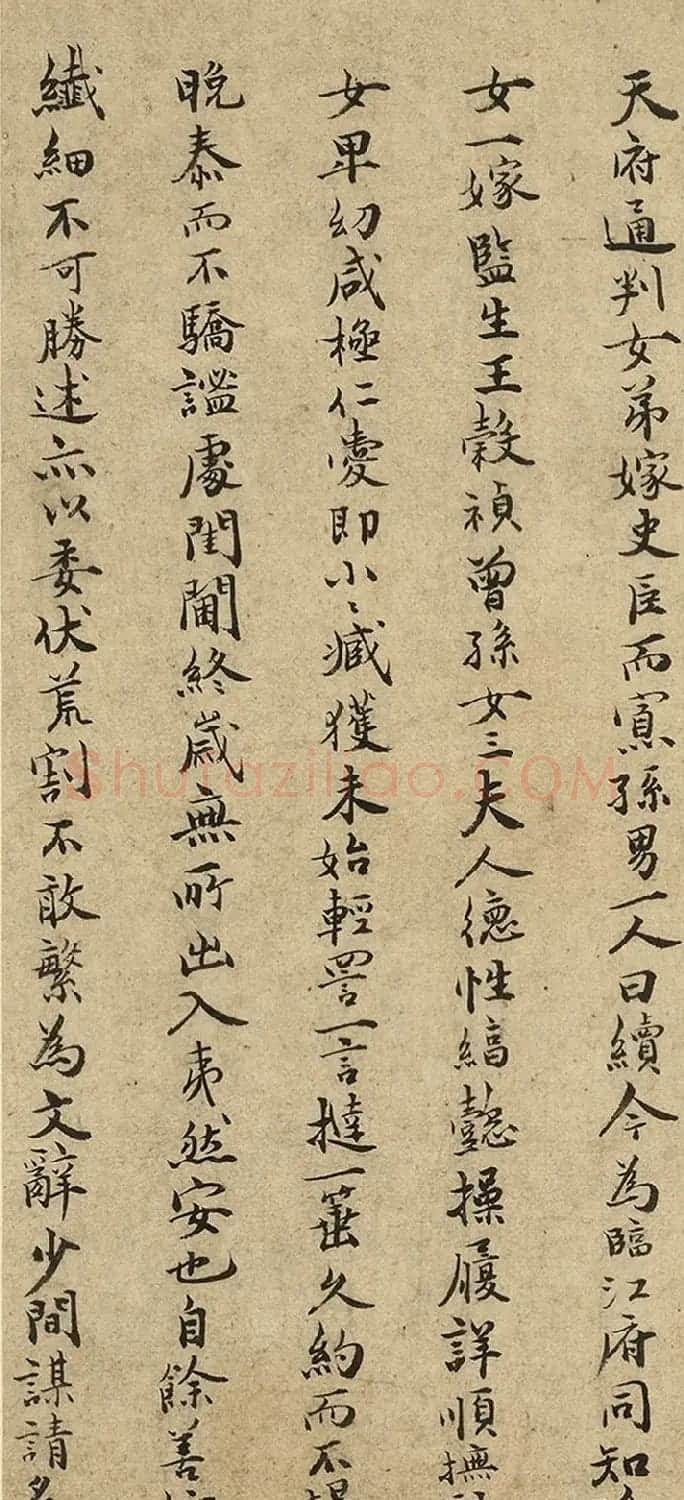 天府通判女弟嫁史臣而寡孫男一人曰續今為臨江府同知
女一嫁監生王穀禎曾孫女三夫人德性縞懿操履詳順撫
女卑幼咸極仁愛即小〻臧獲未始輕詈一言撻一箠久約而不
晚泰而不驕謐處閨闈終歲無所出入夷然安也自餘善
纖細不可勝述亦以委伏荒割不敢繁為文辭少間謀請
Shufaziliao.COM